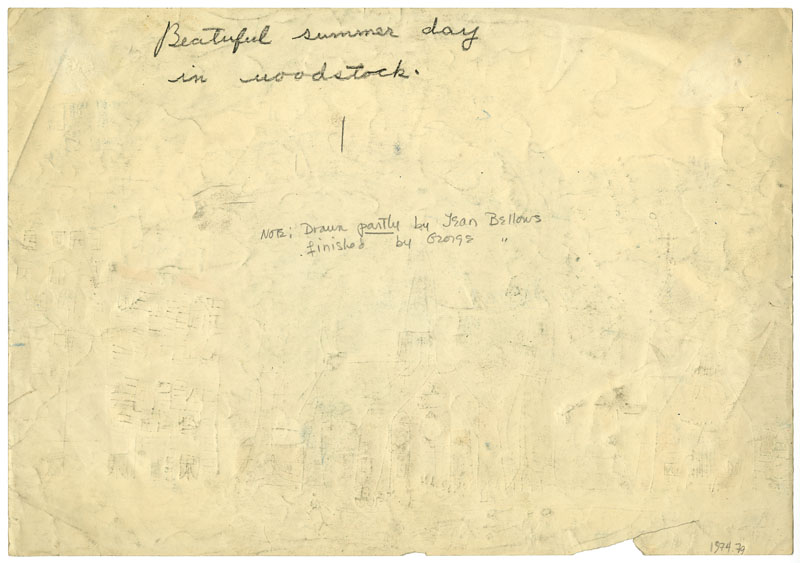 Beatuful summer day
in woodstock.
Note: Drawn partly by Jean Bellows
finished by George "
1974.79